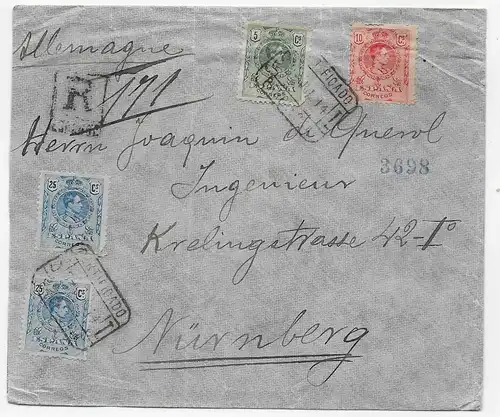 Allemagne
R
171
5 Cs
ESPAÑA
CORREOS
10 Cs
ESPAÑA
CORREOS
Herrn Joaquin de Querol
3698
Ingenieur
Krelingstrasse 42-I°
Nürnberg
25 Cs
ESPAÑA
CORREOS
25 Cs
ESPAÑA
CORREOS